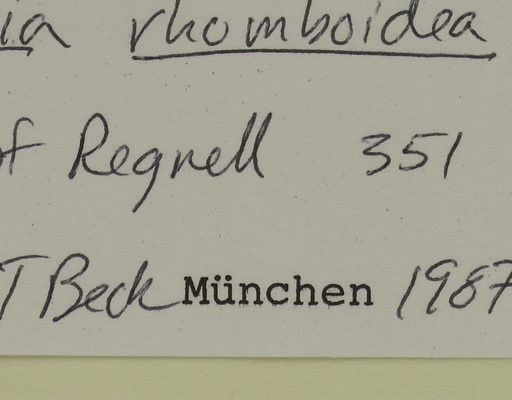 ia rhomboidea
of Regnell 351
T Beck München 1987